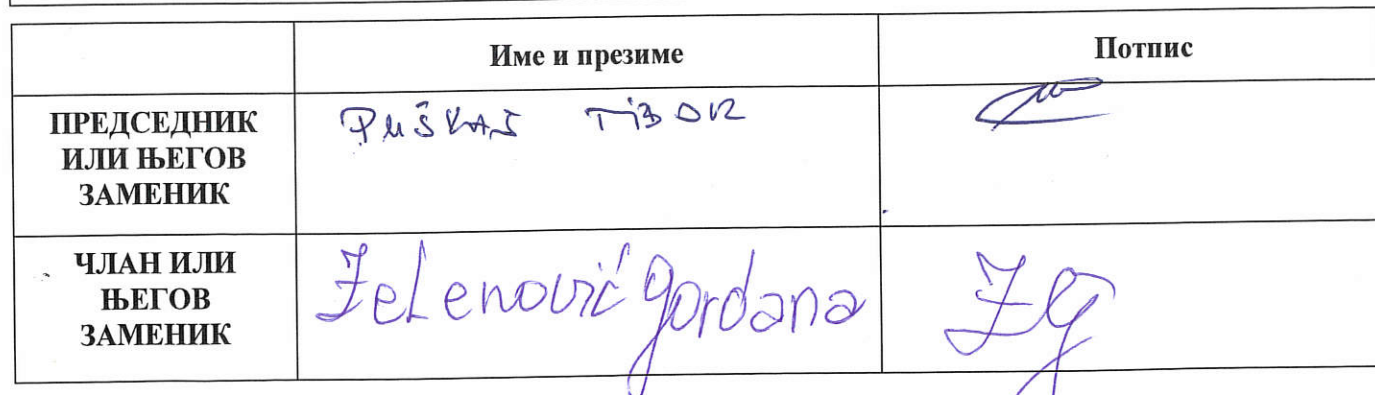 Име и презиме Потпис
ПРЕДСЕДНИК
ИЛИ ЊЕГОВ
ЗАМЕНИК
PUŠKAŠ TIBOR
ЧЛАН ИЛИ
ЊЕГОВ
ЗАМЕНИК
Zelenović Gordana
ZG